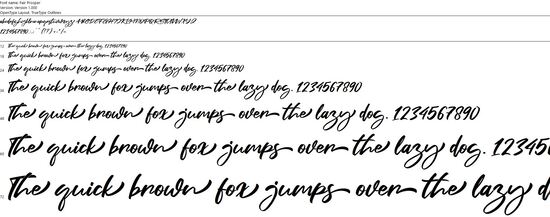 Font name: Fair Prosper
Version: Version 1.000
OpenType Layout, TrueType Outlines
abcdefghijklmnopqrstuvwxyz ABCDEFGHIJKLMNOPQRSTUVWXYZ
1234567890
12 The quick brown fox jumps over the lazy dog. 1234567890
18 The quick brown fox jumps over the lazy dog. 1234567890
24 The quick brown fox jumps over the lazy dog. 1234567890
36 The quick brown fox jumps over the lazy dog. 1234567890
48 The quick brown fox jumps over the lazy dog. 1234567890
60 The quick brown fox jumps over the lazy dog. 12345
72 The quick brown fox jumps over the lazy d